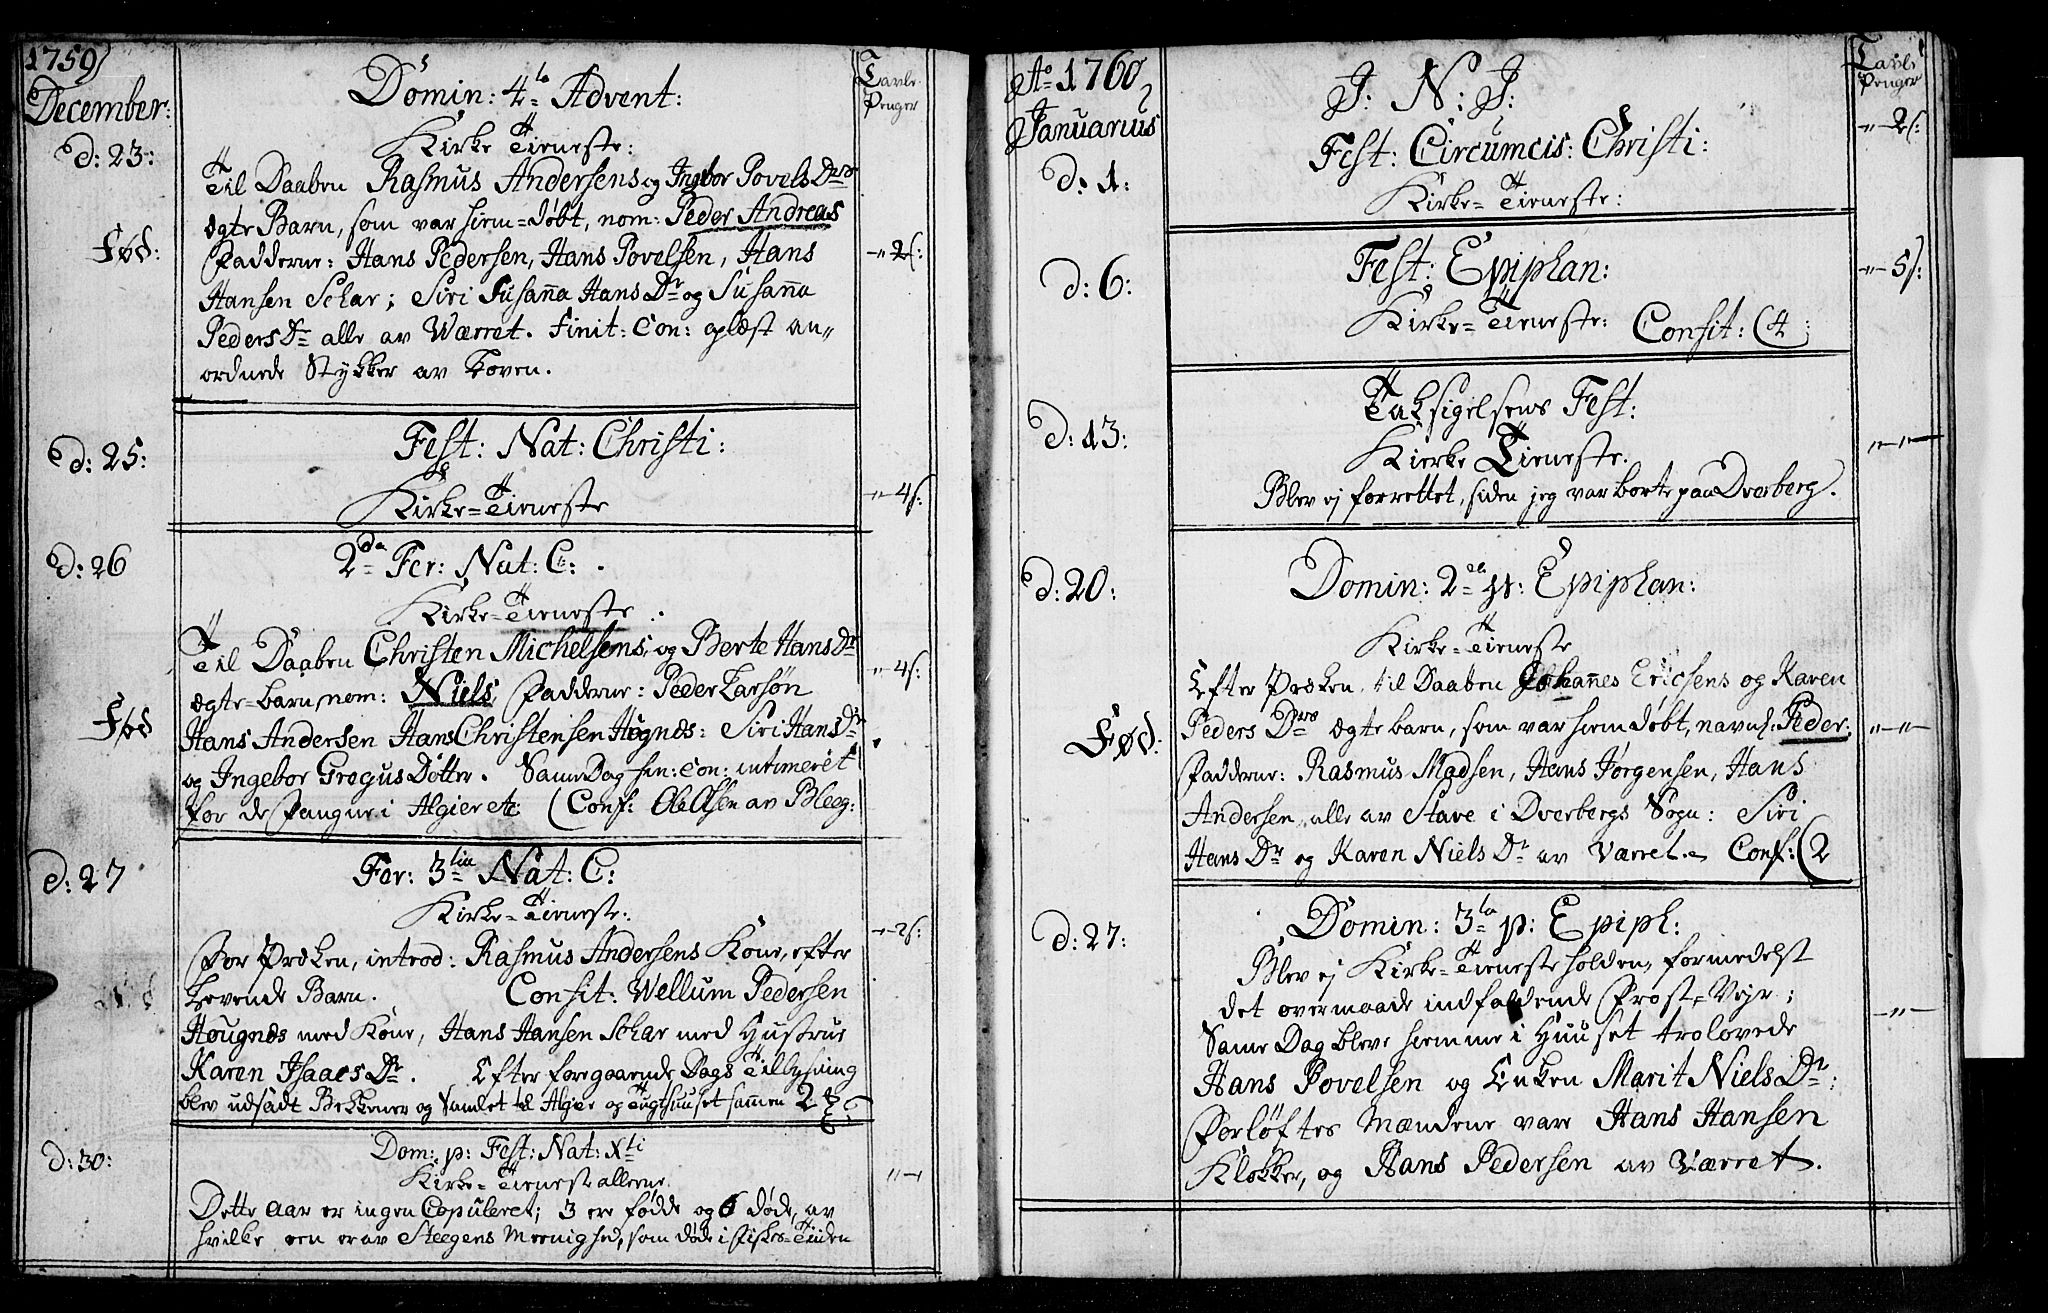 1759
December:
Tavle
Penger
Domin: 4ta Advent:
d: 23:
Kirke Tieneste:
Til Daaben Rasmus Andersens og Ingebor Povels Ders
ægte Barn, som var hiem=døbt, nom: Peder Andreas
Fød:
Fadderne: Hans Pedersen, Hans Povelsen, Hans
"-2ſ:
Hansen Schar; Siri Susanna Hans Dr og Susanna
Peders Dr alle av Wærret. Finit: Con: oplæst an„
ordnede Stykker av Loven.
d: 25:
Fest: Nat: Christi:
Kirke=Tieneste
"-4ſ:
d: 26
2da Fer: Nat: C: .
Kirke=Tieneste .
Til Daaben Christen Michelsens og Berte Hans Dr
ægte=barn, nom: Niels Fadderne: Peder Larsøn
"-4ſ:
Fød
Hans Andersen Hans Christensen Høgnæs: Siri Hans Dr
og Ingebor Gregus Døtter. Same Dag fin: con: intimeret
for de Fangne i Algier etc (Conf: Ole Olsen av Bleeg:
d: 27
Fer: 3tia Nat: C:
Kirke=Tieneste:
"-2ſ:
For Præken, introd: Rasmus Andersens Kone, efter
levende Barn. Confit: Wellum Pedersen
Høugnæs med Kone, Hans Hansen Schar med Hustrue
Karen Isaacs Dr. Efter foregaaende Dags Tillysning
blev udsadt Bekkener og Samlet til Algier og Tugthuuset sammen 2
d: 30:
Dom: p: Fest: Nat: Xti
Kirke=Tieneste allene.
"-
Dette Aar er ingen Copuleret; 3 ere fødde og 6 døde, av
hvilke een er av Steegens Meenighed, som døde i Fiske=Tiiden
Ao 1760
Januarius
Tavle
Penger
J: N: J:
"-2ſ:
d: 1:
Fest: Circumcis: Christi:
Kirke=Tieneste:
d: 6:
Fest: Epiphan:
"-5ſ:
Kirke=Tieneste: Confit: (4:
d: 13:
Taksigelsens Fest:
Kierke Tieneste.
"-"-
Blev ej forrettet, siden jeg var borte paa Dverberg.
d: 20:
Domin: 2da p: Epiphan:
Kirke=Tieneste
Efter Præken, til Daaben Johannes Ericsens og Karen
Fød:
Peders Ders ægte barn, som var hiemdøbt, navnl: Peder:
"-"-
Fadderne: Rasmus Madsen, Hans Jørgensen, Hans
Andersen, alle av Stave i Dverbergs Sogn: Siri
Hans Dr og Karen Niels Dr av Værret. Conf: (2
d: 27:
Domin: 3tia p: Epiph:
Blev ej Kirke=Tieneste holden, formedelst
det overmaade indfaldende Frost=Vejr;
-"-
Same Dag bleve hiemme i Huuset trolovede
Hans Povelsen og Enken Marit Niels Dr:
Forløftes Mændene vare Hans Hansen
Klokker, og Hans Pedersen av Værret.